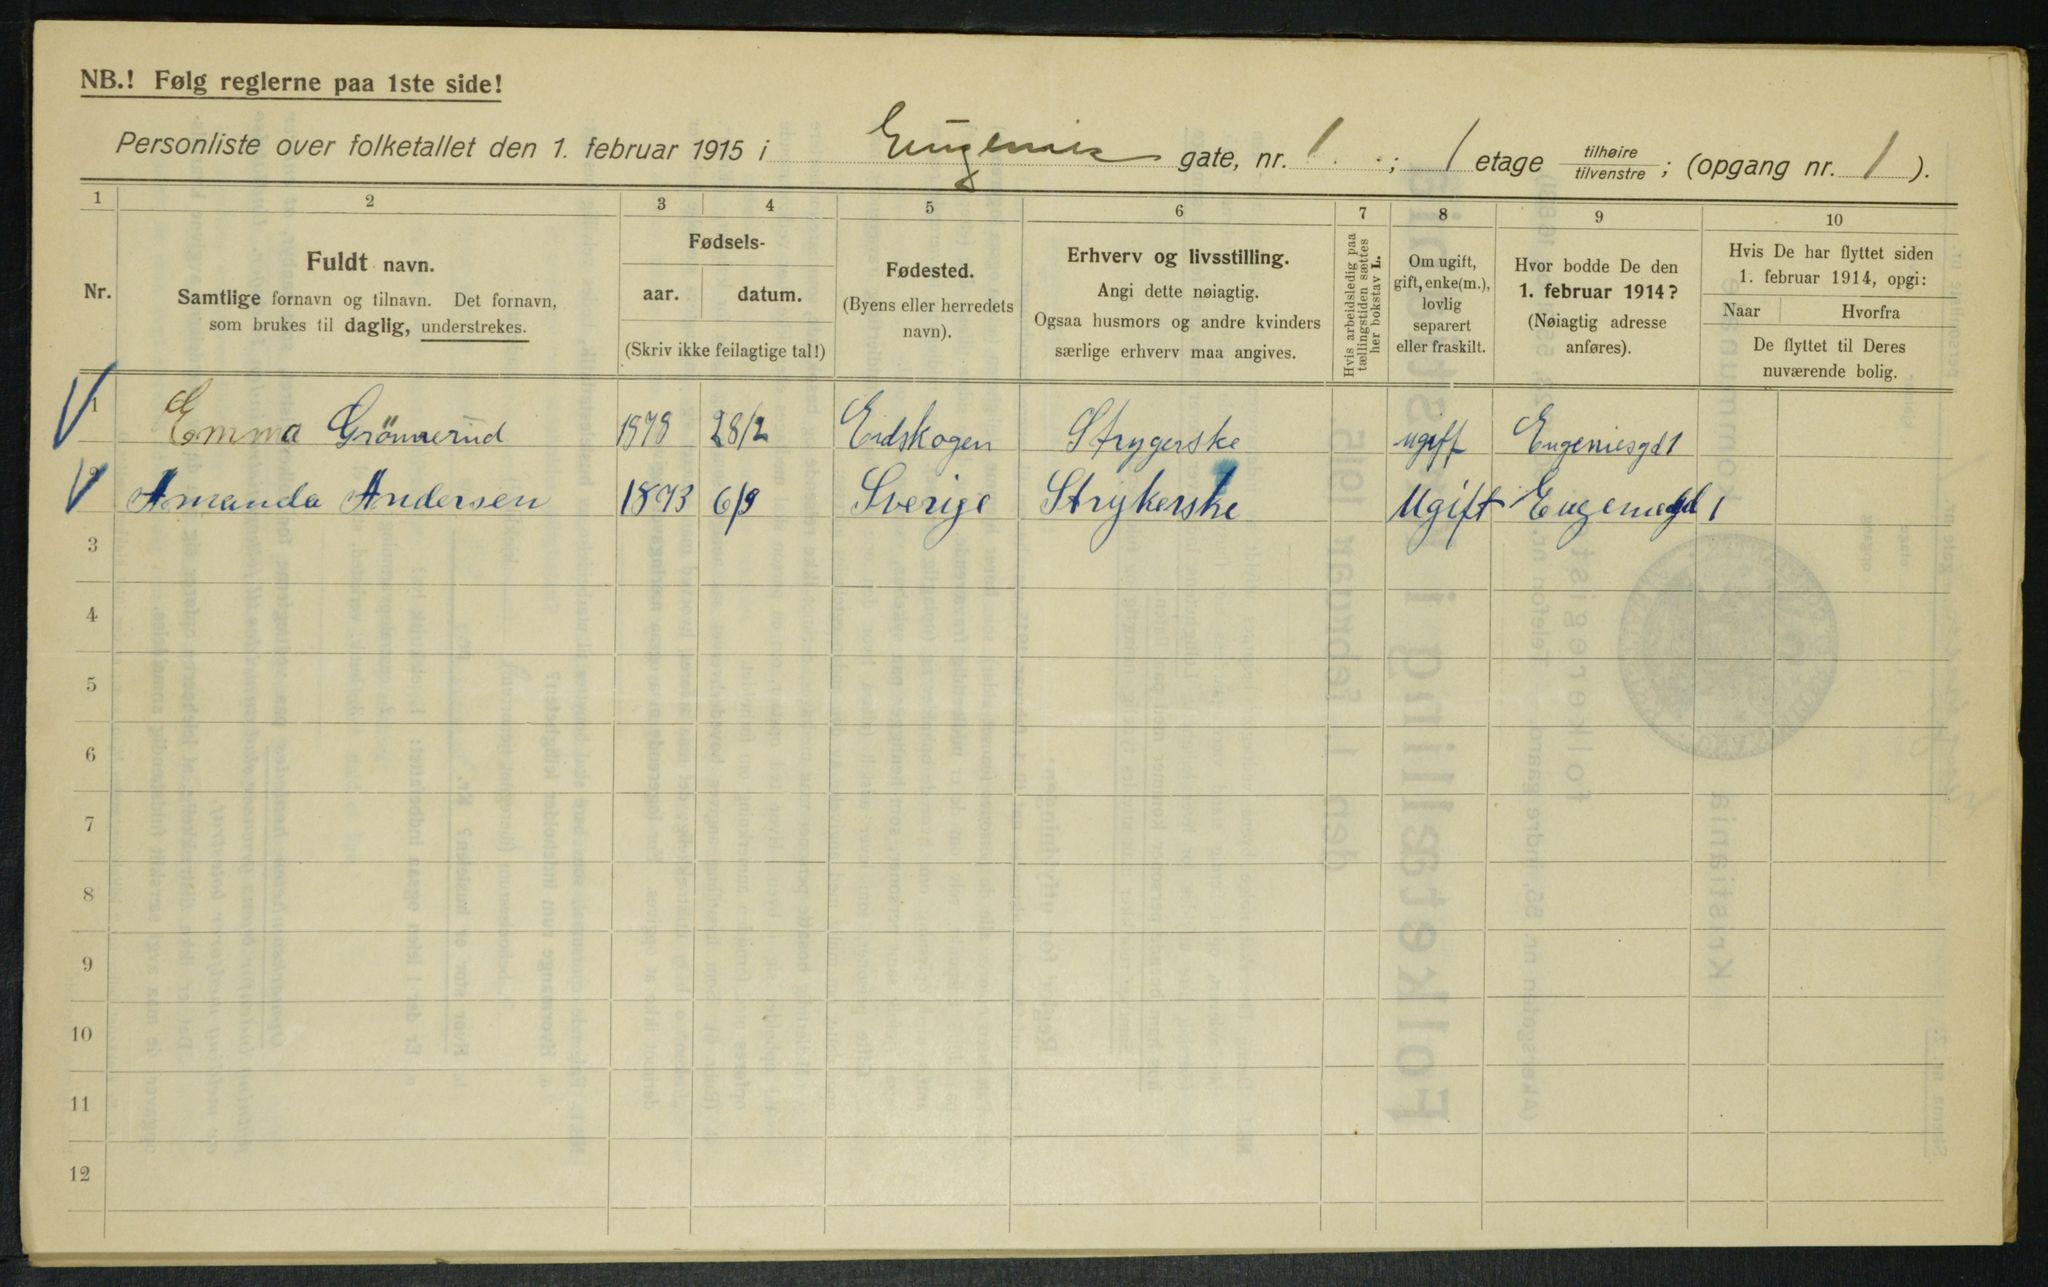 NB.! Følg reglerne paa 1ste side!
Personliste over folketallet den 1. februar 1915 i Eugenies gate, nr. 1 ; 1 etage tilhøire / tilvenstre ; (opgang nr. 1 ).
1 2 3 4 5 6 7 8 9 10
Nr.
Fuldt navn.
Samtlige fornavn og tilnavn. Det fornavn,
som brukes til daglig, understrekes.
Fødsels-
aar. datum.
(Skriv ikke feilagtige tal!)
Fødested.
(Byens eller herredets
navn).
Erhverv og livsstilling.
Angi dette nøiagtig.
Ogsaa husmors og andre kvinders
særlige erhverv maa angives.
Hvis arbeidsledig paa
tællingstiden sættes
her bokstav L.
Om ugift,
gift, enke(m.),
lovlig
separert
eller fraskilt.
Hvor bodde De den
1. februar 1914?
(Nøiagtig adresse
anføres).
Hvis De har flyttet siden
1. februar 1914, opgi:
Naar Hvorfra
De flyttet til Deres
nuværende bolig.
1 Emma Grönnerud 1878 28/2 Eidskogen Strygerske ugift Eugeniesgd 1
2 Amanda Andersen 1893 6/9 Sverige Strykerske Ugift Eugeniegd 1
3
4
5
6
7
8
9
10
11
12